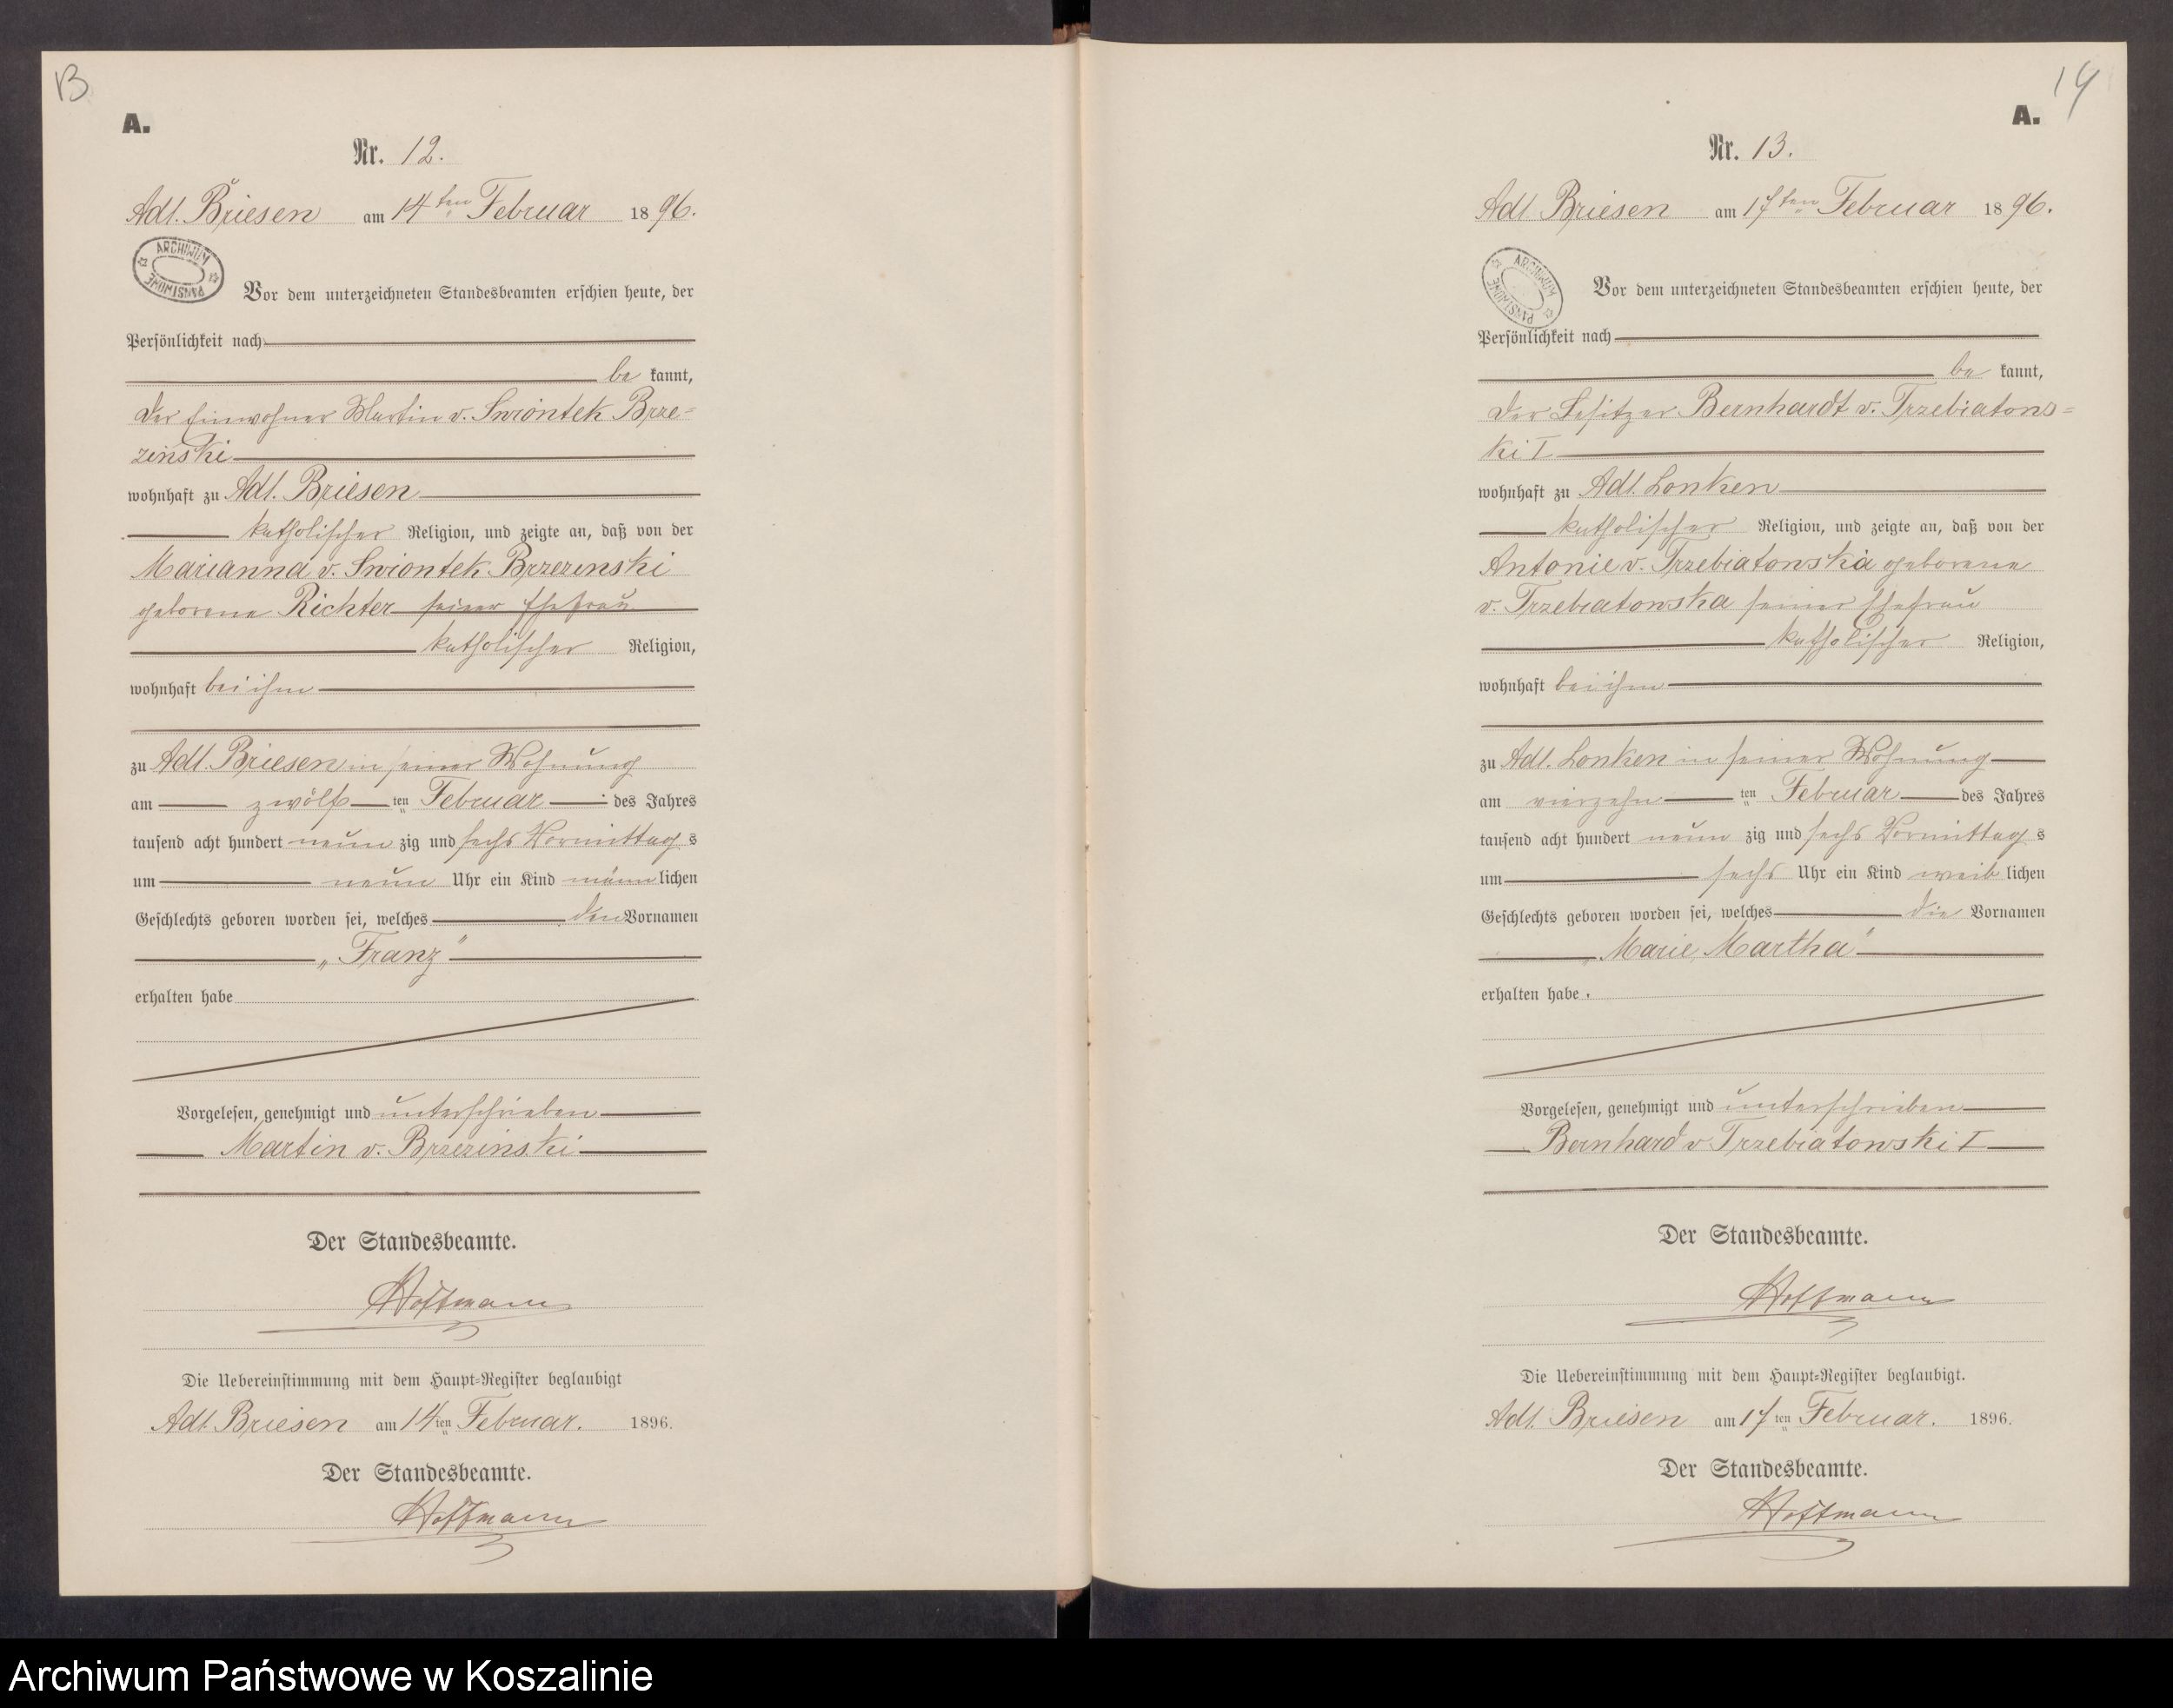 13
A.
Nr. 12.
Adl. Briesen am 14ten Februar 1896.
ARCHIWUM
PAŃSTWOWE
Vor dem unterzeichneten Standesbeamten erschien heute, der
Persönlichkeit nach
be kannt,
der Einwohner Martin v. Swiontek Brze=
zinski
wohnhaft zu Adl. Briesen
katholischer Religion, und zeigte an, daß von der
Marianna v. Swiontek Brzezinski
geborene Richter seiner Ehefrau
katholischer Religion,
wohnhaft bei ihm
zu Adl. Briesen in seiner Wohnung
am zwölf ten Februar des Jahres
tausend acht hundert neun zig und sechs Vormittag s
um neun Uhr ein Kind männ lichen
Geschlechts geboren worden sei, welches den Vornamen
„Franz“
erhalten habe
Vorgelesen, genehmigt und unterschrieben
Martin v. Brzezinski
Der Standesbeamte.
Hoffmann
Die Uebereinstimmung mit dem Haupt=Register beglaubigt
Adl. Briesen am 14ten Februar. 1896.
Der Standesbeamte.
Hoffmann
14
A.
Nr. 13.
Adl. Briesen am 17ten Februar 1896.
ARCHIWUM
PAŃSTWOWE
Vor dem unterzeichneten Standesbeamten erschien heute, der
Persönlichkeit nach
be kannt,
der Besitzer Bernhardt v. Trzebiatows=
ki I
wohnhaft zu Adl. Lonken
katholischer Religion, und zeigte an, daß von der
Antonie v. Trzebiatowska geborene
v. Trzebiatowska seiner Ehefrau
katholischer Religion,
wohnhaft bei ihm
zu Adl. Lonken in seiner Wohnung
am vierzehn ten Februar des Jahres
tausend acht hundert neun zig und sechs Vormittag s
um sechs Uhr ein Kind weib lichen
Geschlechts geboren worden sei, welches die Vornamen
„Marie, Martha“
erhalten habe.
Vorgelesen, genehmigt und unterschrieben
Bernhard v Trzebiatowski I
Der Standesbeamte.
Hoffmann
Die Uebereinstimmung mit dem Haupt=Register beglaubigt.
Adl. Briesen am 17ten Februar. 1896.
Der Standesbeamte.
Hoffmann
Archiwum Państwowe w Koszalinie